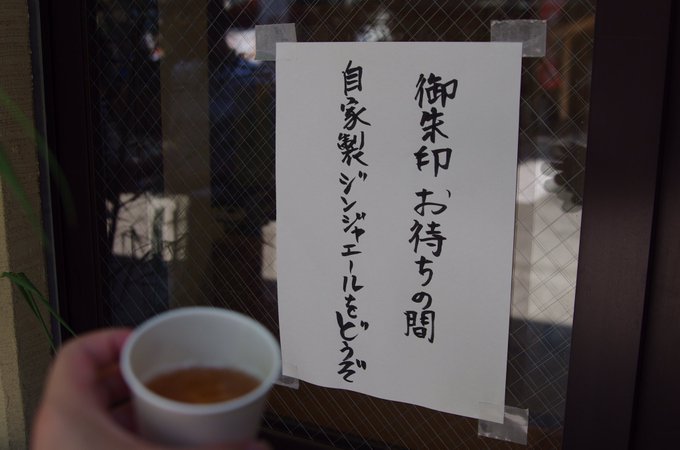 御朱印 お待ちの間
自家製ジンジャエールをどうぞ